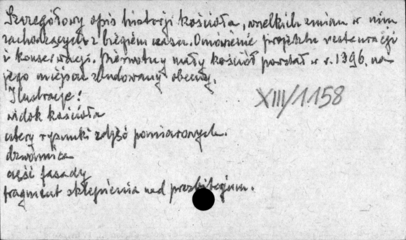 Szczegółowy opis historji kościoła, wszelkich zmian w nim
zachodzących z biegiem czasu. Omówienie projektu restauracji
i konserwacji. Pierwotny mały kościół powstał w r. 1396, na
jego miejsce zbudowany obecny.
Ilustracje:
XIII/1158
widok kościoła
cztery rysunki zdjęć pomiarowych.
dzwonnica
część fasady
fragment sklepienia nad prezbiterjum.